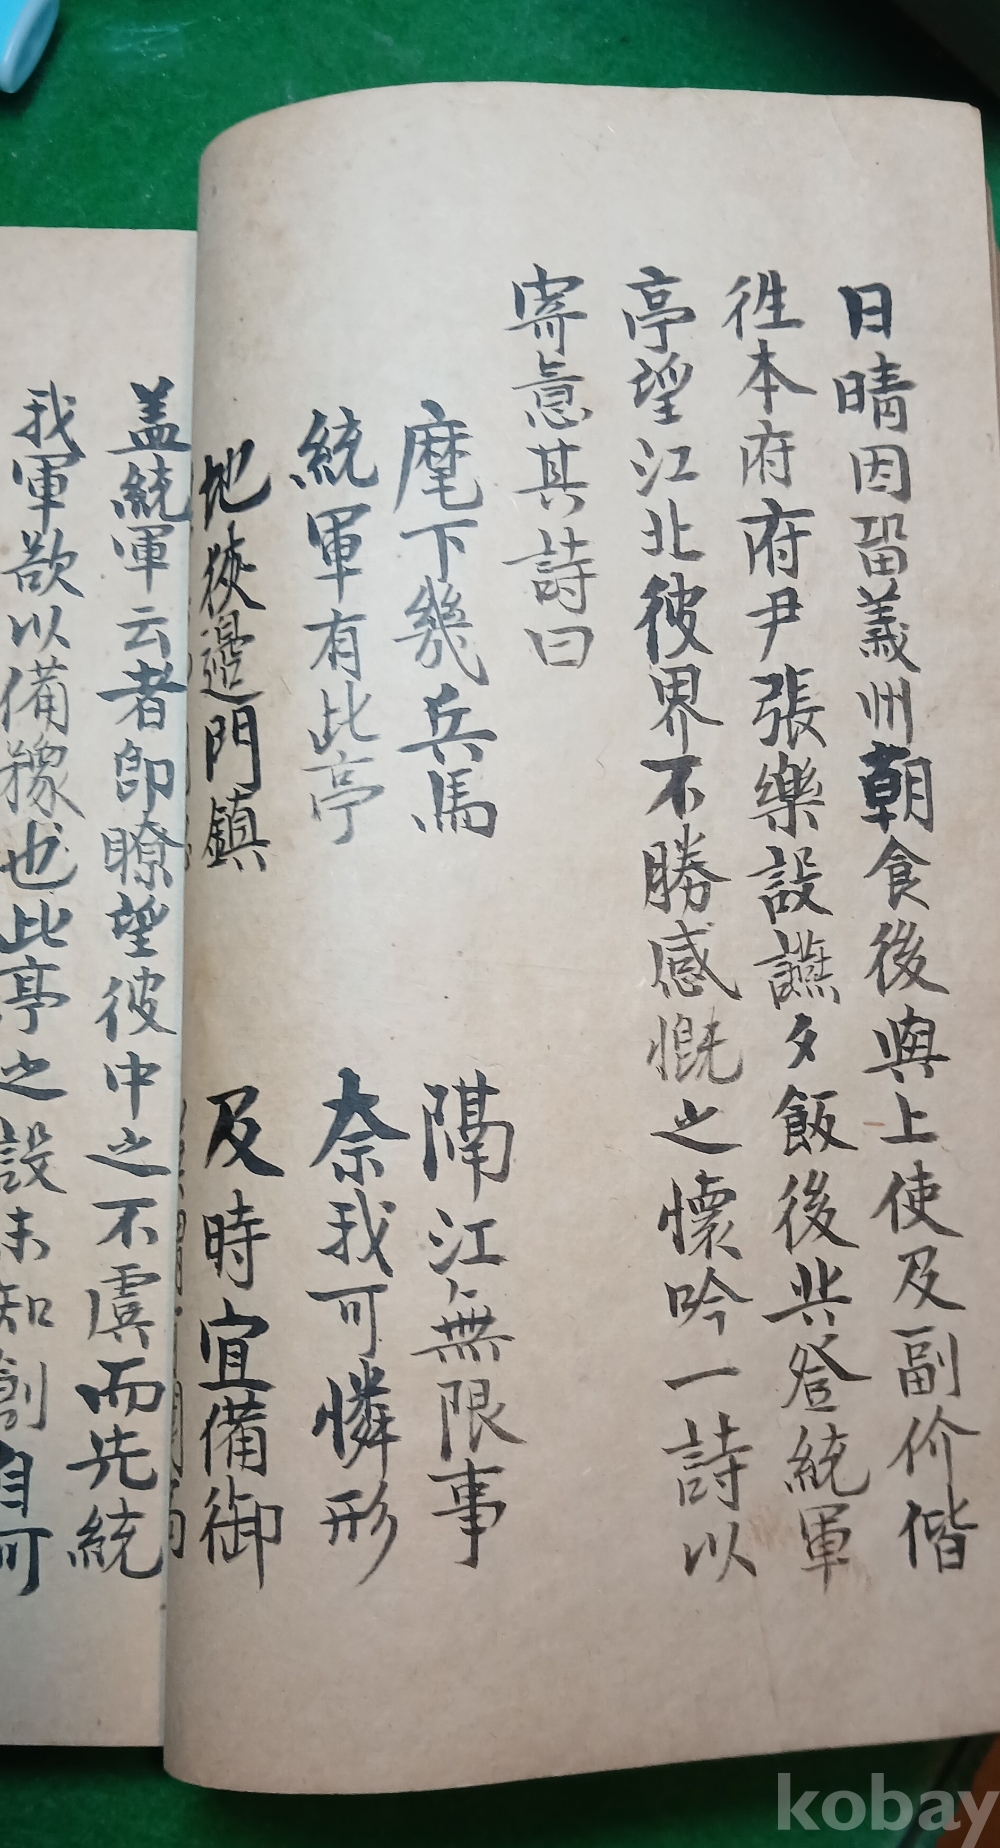 日晴因留義州朝食後與上使及副价偕
徃本府府尹張樂設讌夕飯後共登統軍
亭望江北彼界不勝感慨之懷吟一詩以
寄意其詩曰
麾下幾兵馬 隔江無限事
統軍有此亭 奈我可憐形
地狹邊門鎮 及時宜備御
盖統軍云者即瞭望彼中之不虞而先統
我軍欲以備禦也此亭之設未知創自何
kobay